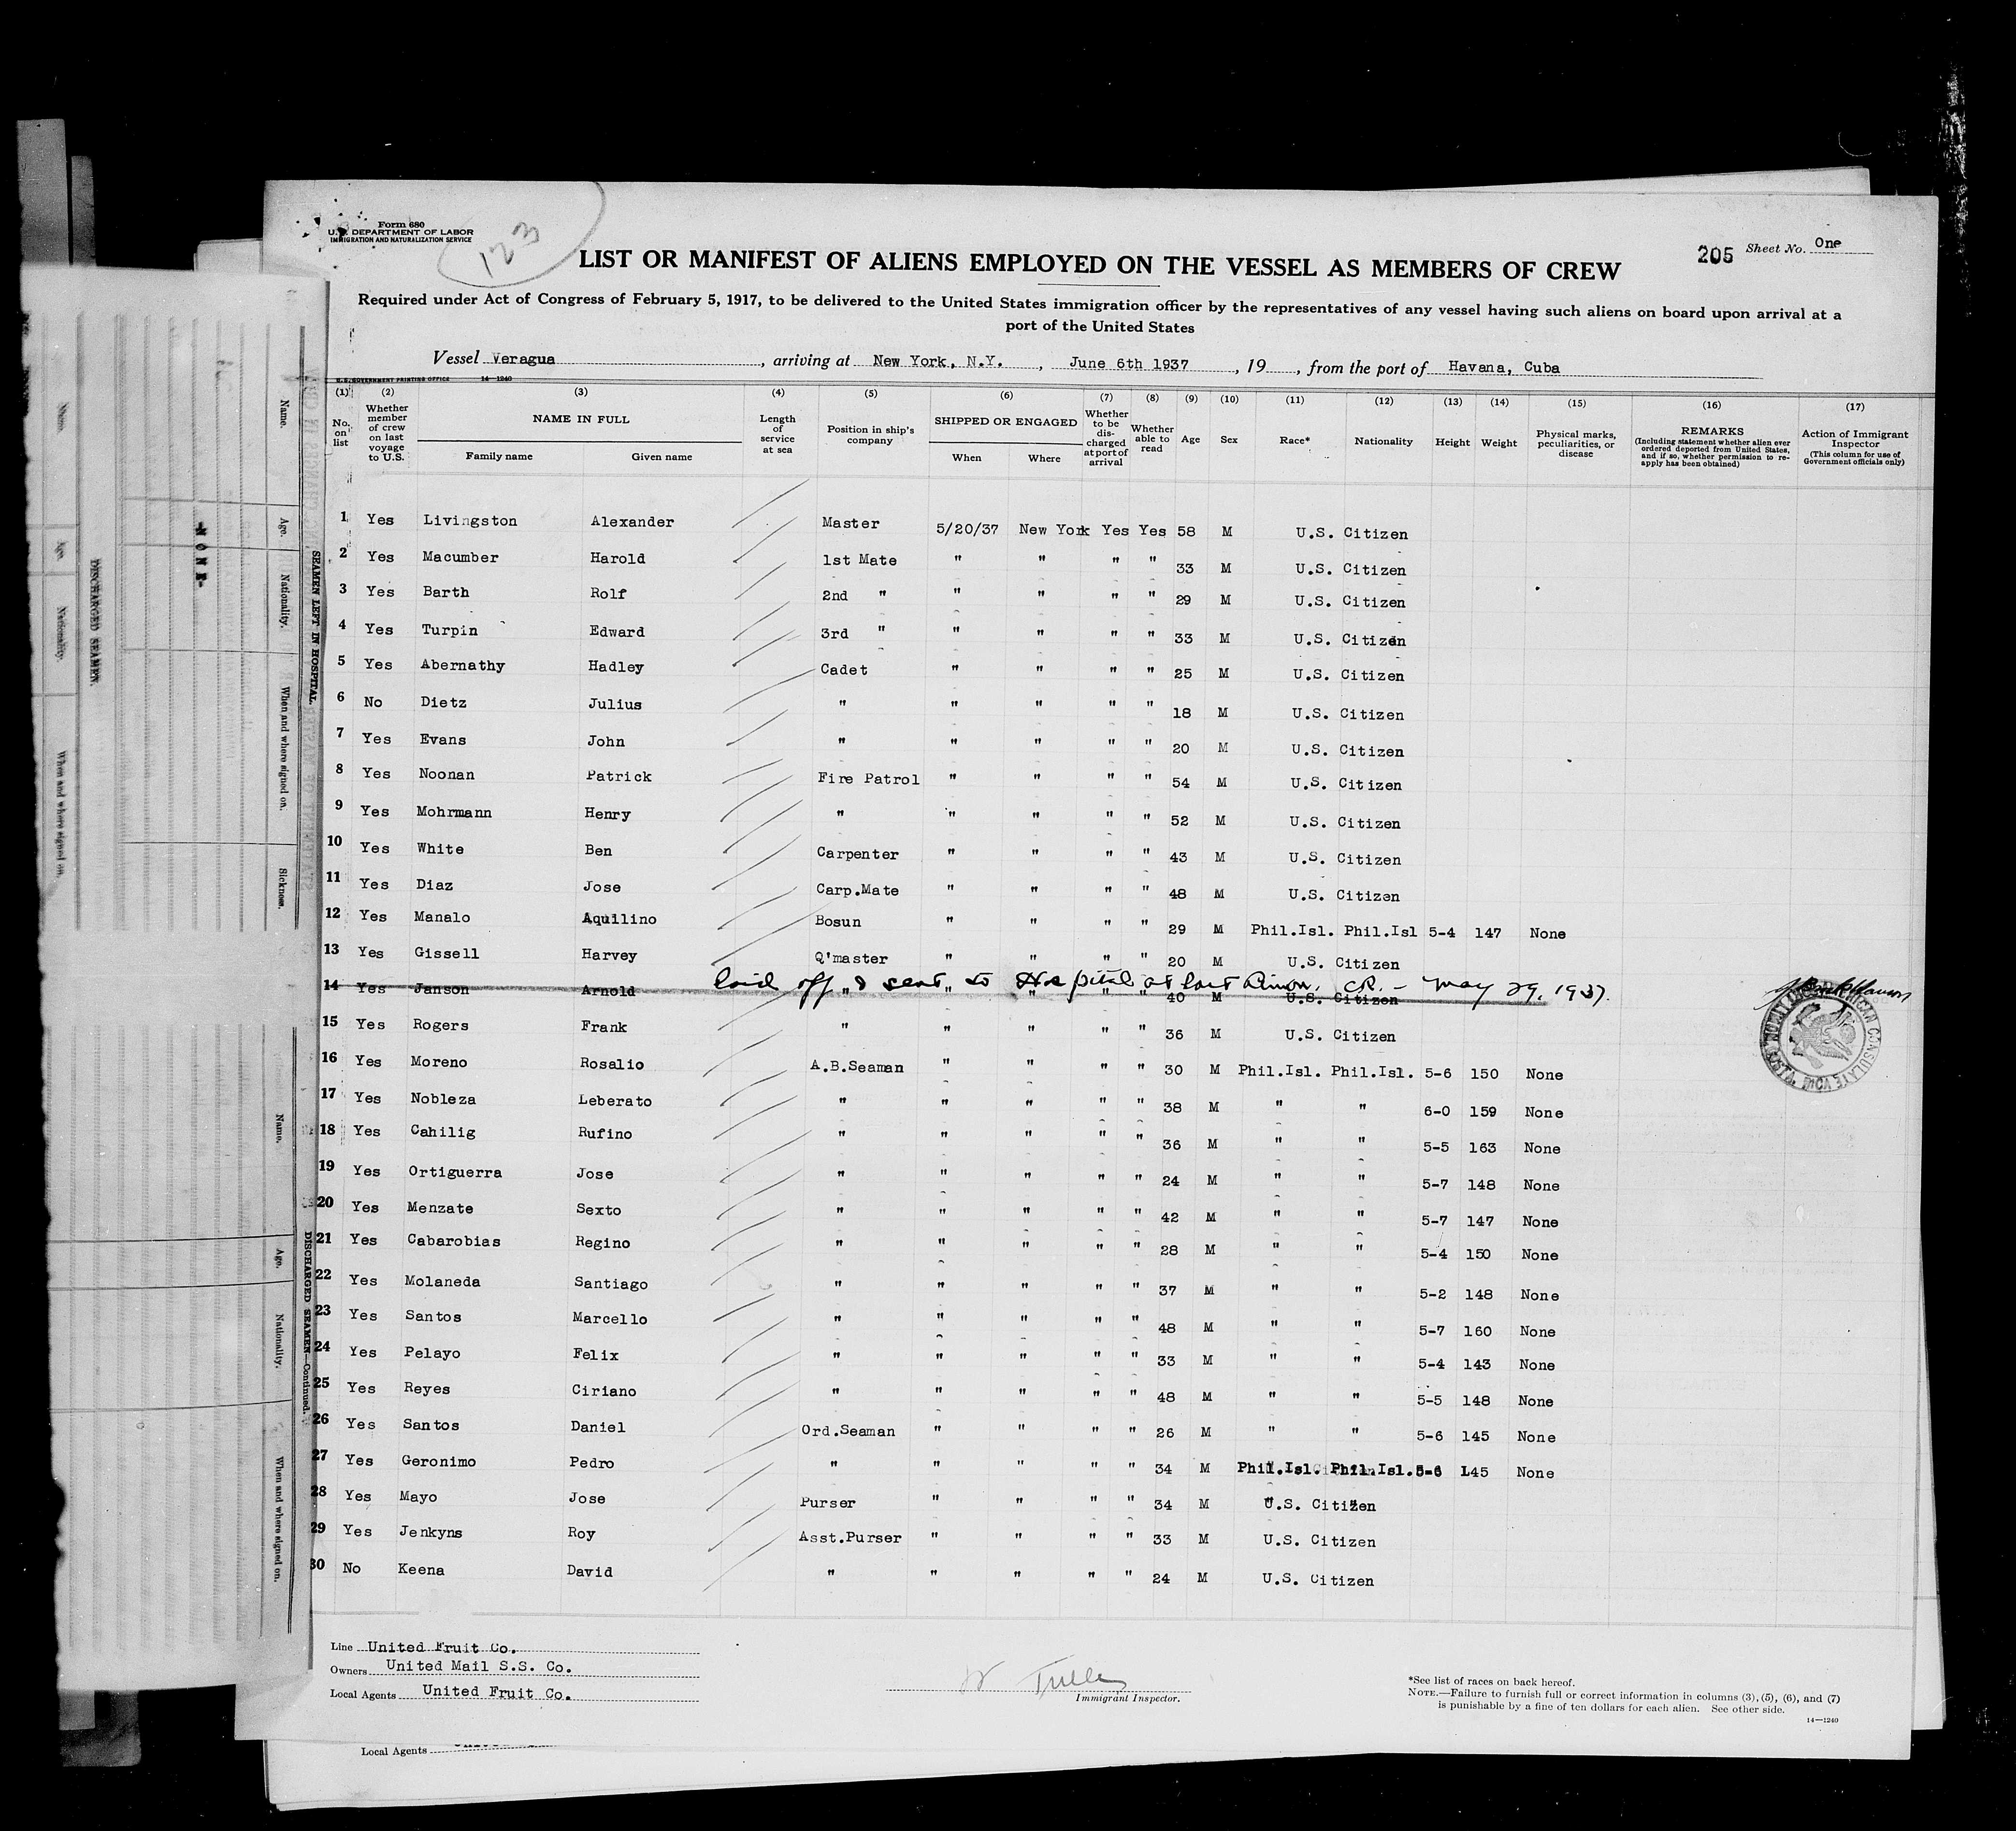 Form 680
U.S. DEPARTMENT OF LABOR
IMMIGRATION AND NATURALIZATION SERVICE
123
205 Sheet No. One
LIST OR MANIFEST OF ALIENS EMPLOYED ON THE VESSEL AS MEMBERS OF CREW
Required under Act of Congress of February 5, 1917, to be delivered to the United States immigration officer by the representatives of any vessel having such aliens on board upon arrival at a
port of the United States
Vessel Veragua, arriving at New York, N.Y., June 6th 1937, 19, from the port of Havana, Cuba
U.S. GOVERNMENT PRINTING OFFICE 14—1240
(1) (2) (3) (4) (5) (6) (7) (8) (9) (10) (11) (12) (13) (14) (15) (16) (17)
No. on list
Whether member of crew on last voyage to U.S.
NAME IN FULL
Family name
Given name
Length of service at sea
Position in ship's company
SHIPPED OR ENGAGED
When
Where
Whether to be discharged at port of arrival
Whether able to read
Age
Sex
Race*
Nationality
Height
Weight
Physical marks, peculiarities, or disease
REMARKS
(Including statement whether alien ever ordered deported from United States, and if so, whether permission to reapply has been obtained)
Action of Immigrant Inspector
(This column for use of Government officials only)
1 Yes Livingston Alexander Master 5/20/37 New York Yes Yes 58 M U.S. Citizen
2 Yes Macumber Harold 1st Mate " " " " 33 M U.S. Citizen
3 Yes Barth Rolf 2nd " " " " " 29 M U.S. Citizen
4 Yes Turpin Edward 3rd " " " " " 33 M U.S. Citizen
5 Yes Abernathy Hadley Cadet " " " " 25 M U.S. Citizen
6 No Dietz Julius " " " " " 18 M U.S. Citizen
7 Yes Evans John " " " " " 20 M U.S. Citizen
8 Yes Noonan Patrick Fire Patrol " " " " 54 M U.S. Citizen
9 Yes Mohrmann Henry " " " " " 52 M U.S. Citizen
10 Yes White Ben Carpenter " " " " 43 M U.S. Citizen
11 Yes Diaz Jose Carp.Mate " " " " 48 M U.S. Citizen
12 Yes Manalo Aquilino Bosun " " " " 29 M Phil.Isl. Phil.Isl 5-4 147 None
13 Yes Gissell Harvey Q'master " " " " 20 M U.S. Citizen
laid off & sent to Hospital at Port Limon, CR. - May 29, 1937.
14 Yes Janson Arnold " " " " " 40 M U.S. Citizen
15 Yes Rogers Frank " " " " " 36 M U.S. Citizen
16 Yes Moreno Rosalio A.B.Seaman " " " " 30 M Phil.Isl. Phil.Isl. 5-6 150 None
17 Yes Nobleza Leberato " " " " " 38 M " " 6-0 159 None
18 Yes Cahilig Rufino " " " " " 36 M " " 5-5 163 None
19 Yes Ortiguerra Jose " " " " " 24 M " " 5-7 148 None
20 Yes Menzate Sexto " " " " " 42 M " " 5-7 147 None
21 Yes Cabarobias Regino " " " " " 28 M " " 5-4 150 None
22 Yes Molaneda Santiago " " " " " 37 M " " 5-2 148 None
23 Yes Santos Marcello " " " " " 48 M " " 5-7 160 None
24 Yes Pelayo Felix " " " " " 33 M " " 5-4 143 None
25 Yes Reyes Ciriano " " " " " 48 M " " 5-5 148 None
26 Yes Santos Daniel Ord.Seaman " " " " 26 M " " 5-6 145 None
27 Yes Geronimo Pedro " " " " " 34 M Phil.Isl. Phil.Isl. 5-6 145 None
28 Yes Mayo Jose Purser " " " " 34 M U.S. Citizen
29 Yes Jenkyns Roy Asst.Purser " " " " 33 M U.S. Citizen
30 No Keena David " " " " " 24 M U.S. Citizen
AMERICAN CONSULATE
Line United Fruit Co.
Owners United Mail S.S. Co.
Local Agents United Fruit Co.
Immigrant Inspector.
*See list of races on back hereof.
NOTE.—Failure to furnish full or correct information in columns (3), (5), (6), and (7)
is punishable by a fine of ten dollars for each alien. See other side.
14—1240
Local Agents
SEAMEN LEFT IN HOSPITAL.
Name.
Age.
Nationality.
When and where signed on.
Sickness.
-NONE-
DISCHARGED SEAMEN.
Name.
Age.
Nationality.
When and where signed on.
DISCHARGED SEAMEN—Continued.
Name.
Age.
Nationality.
When and where signed on.